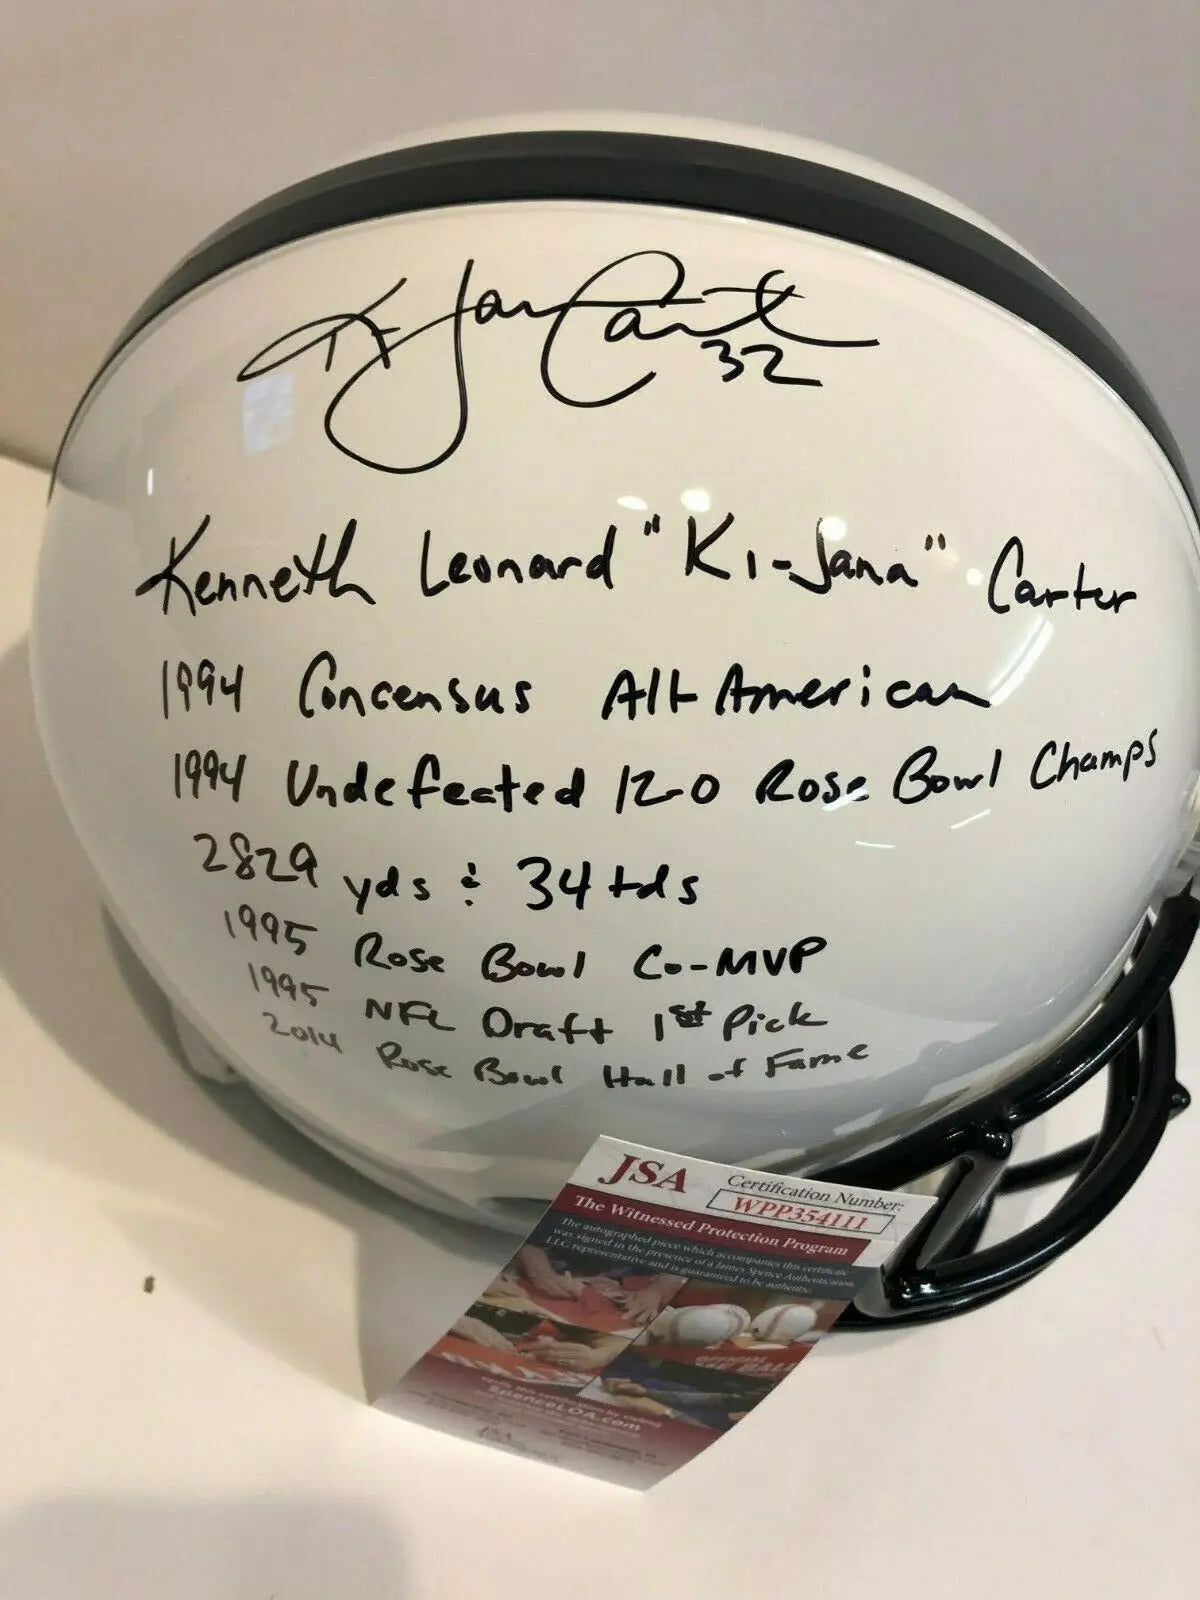 Ki-Jana Carter
32
Kenneth Leonard "Ki-Jana" Carter
1994 Concensus All-American
1994 Undefeated 12-0 Rose Bowl Champs
2829 yds & 34 tds
1995 Rose Bowl Co-MVP
1995 NFL Draft 1st Pick
2014 Rose Bowl Hall of Fame
JSA
Certification Number:
WPP354111
The Witnessed Protection Program
The autographed piece which accompanies this certificate
was signed in the presence of a James Spence Authentication
LLC representative and is guaranteed to be authentic.
SpenceLOA.com